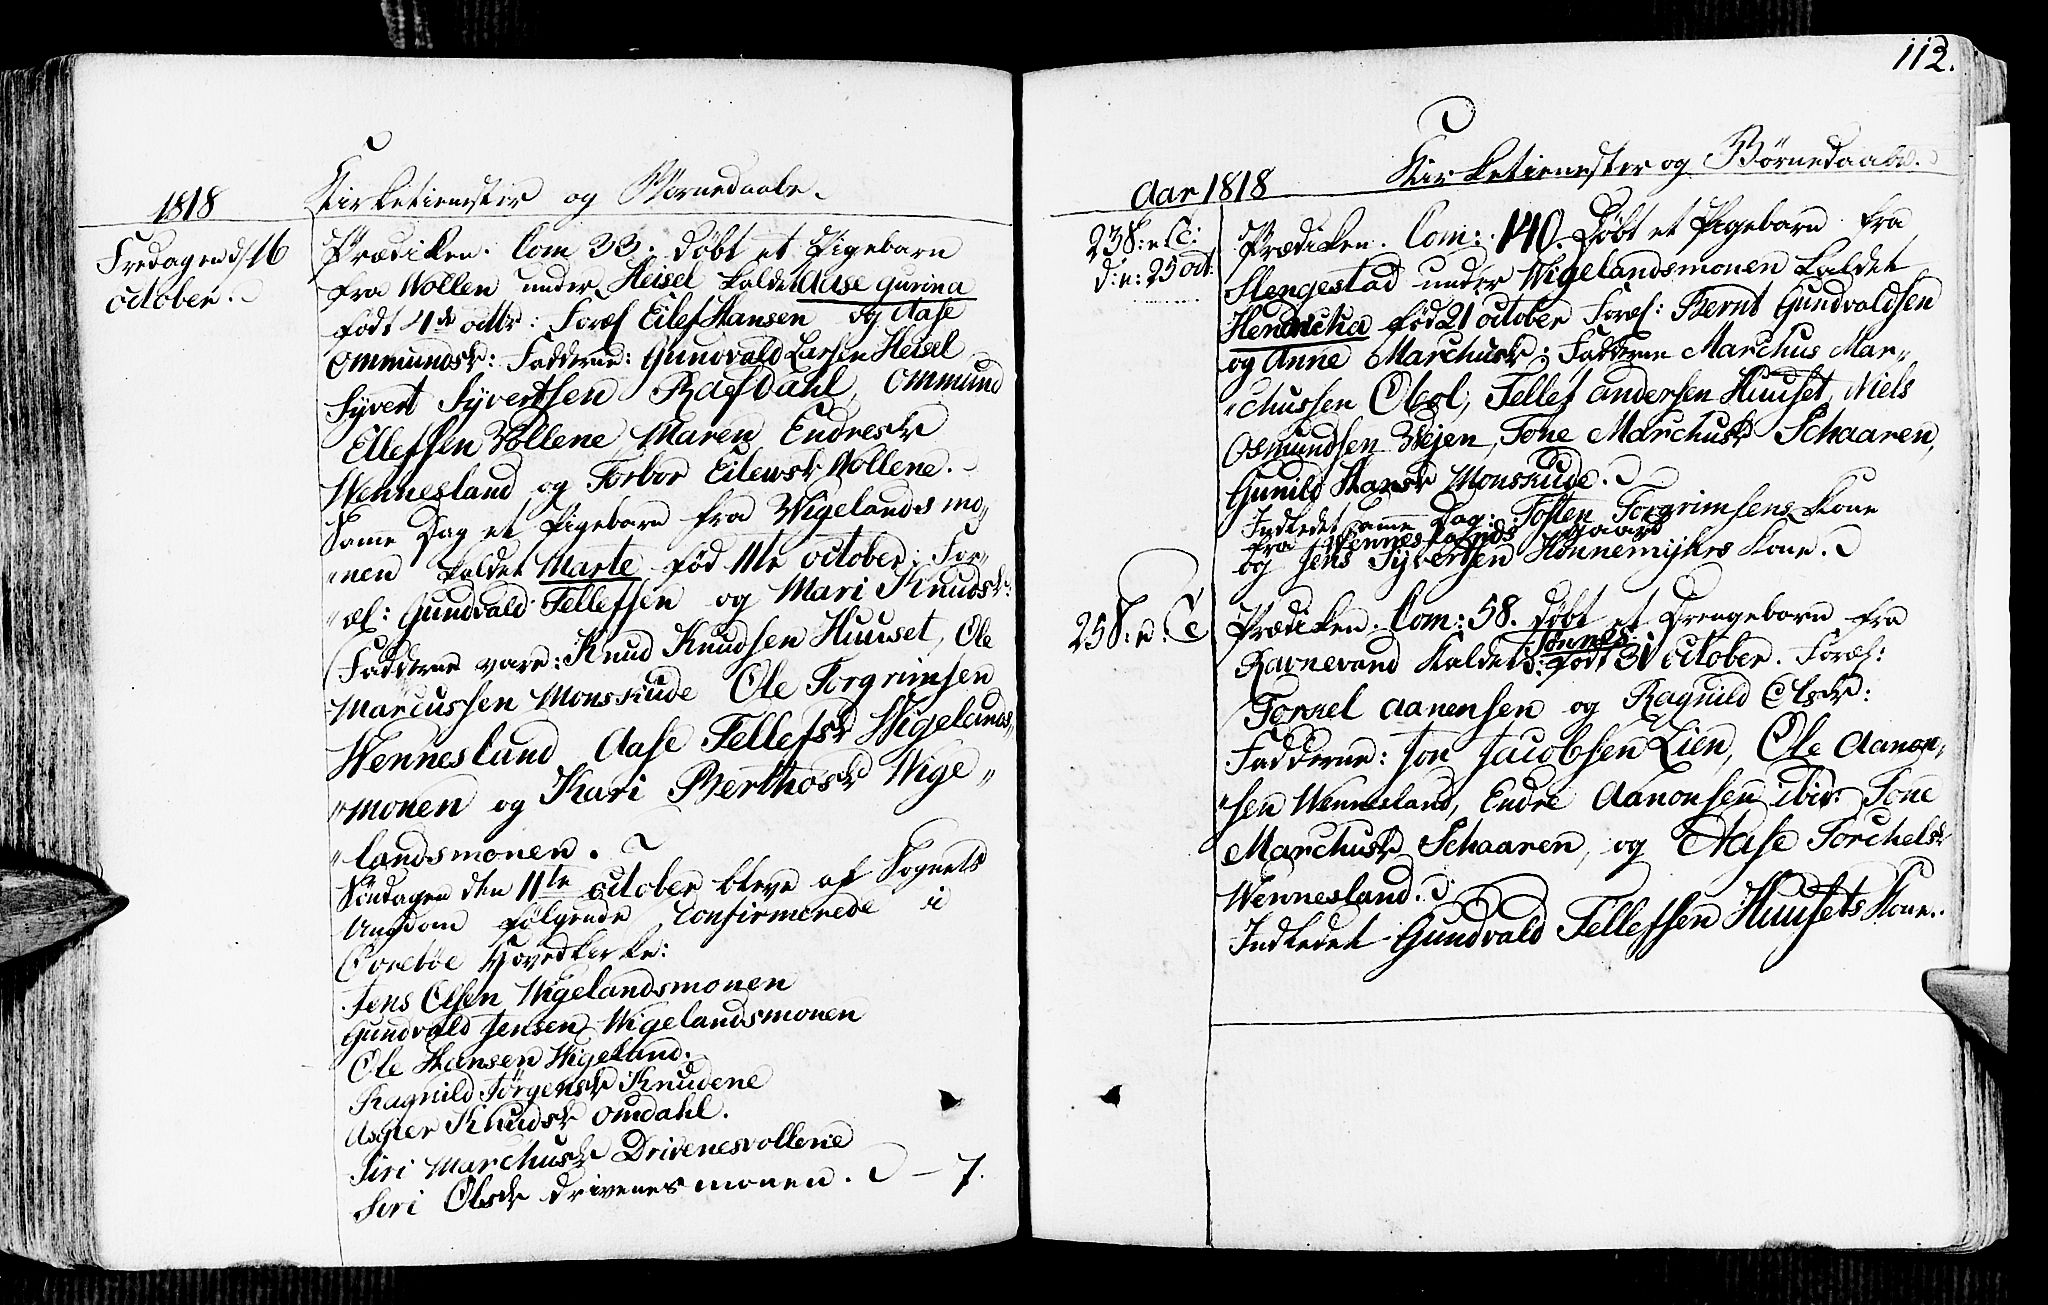 1818
Kirketienester og Børnedaabe.
Fredagen d/16
october.
Prædiken. Com 33. døbt et Pigebarn
fra Wollen under Heisel kaldet Aase Gurina
født 4de octbr: Foræl Eilef Hansen og Aase
Ommundsd: Fadderne: Gundvald Larsen Heisel
Syvert Syvertsen Rafdahl, Ommund
Ellefsen Vollene Maren Endresd
Wennesland og Torbor Eilewsd Wollene.
Samme Dag et Pigebarn fra Wigelandsmo„
„nen kaldet Marte fød 11te october. For„
„æl: Gundvald Tellefsen og Mari Knudsd:
Fadderne vare: Knud Knudsen Huuset, Ole
Marcussen Monskude Ole Torgrimsen
Wennesland Aase Tellefsd Wigelands„
„monen og Kari Berthosd Wige„
„landsmonen.
Søndagen den 11te october bleve af Sognets
Ungdom følgende Confirmerede i
Øvrebøe Hovedkirke:
Jens Olsen Wigelandsmonen
Gundvald Jensen Wigelandsmonen
Ole Hansen Wigeland.
Ragnild Jørgensd Knudene
Asgier Knudsd Omdahl.
Siri Marchusd Drivenesvollene
Siri Olsd drivenesmonen. – 7.
112.
Aar 1818
Kirketienester og Børnedaabe.
23 S: e: T:
d: e: 25 oct:
Prædiken. Com: 140. Døbt et Pigebarn fra
Stengestad under Wigelandsmonen kaldet
Hendricha fød 21 october Foræl: Bernt Gundvaldsen
og Anne Marchusd: Fadderne Marchus Mar„
„chussen Obol, Tellef Andersen Huuset, Niels
Osmundsen Vejen, Tone Marchusd Schaaren,
Gunild Hansd Monskude.
Indledet samme Dag: Tosten Torgrimsens Kone
fra Wenneslands gaard
og Jens Syvertsen Hønnemyhrs Kone.
25 S: e: T
Prædiken. Com: 58. døbt et Drengebarn fra
Ravnevand kaldet Tønnes født 31 october. Foræl:
Torkel Aanensen og Ragnild Olsd:
Fadderne: Jon Jacobsen Lien, Ole Aanon„
„sen Wennesland, Endre Aanonsen ibid: Tone
Marchusd Schaaren, og Aase Torchelsd
Wennesland.
Indledet Gundvald Tellefsen Huusets Kone.